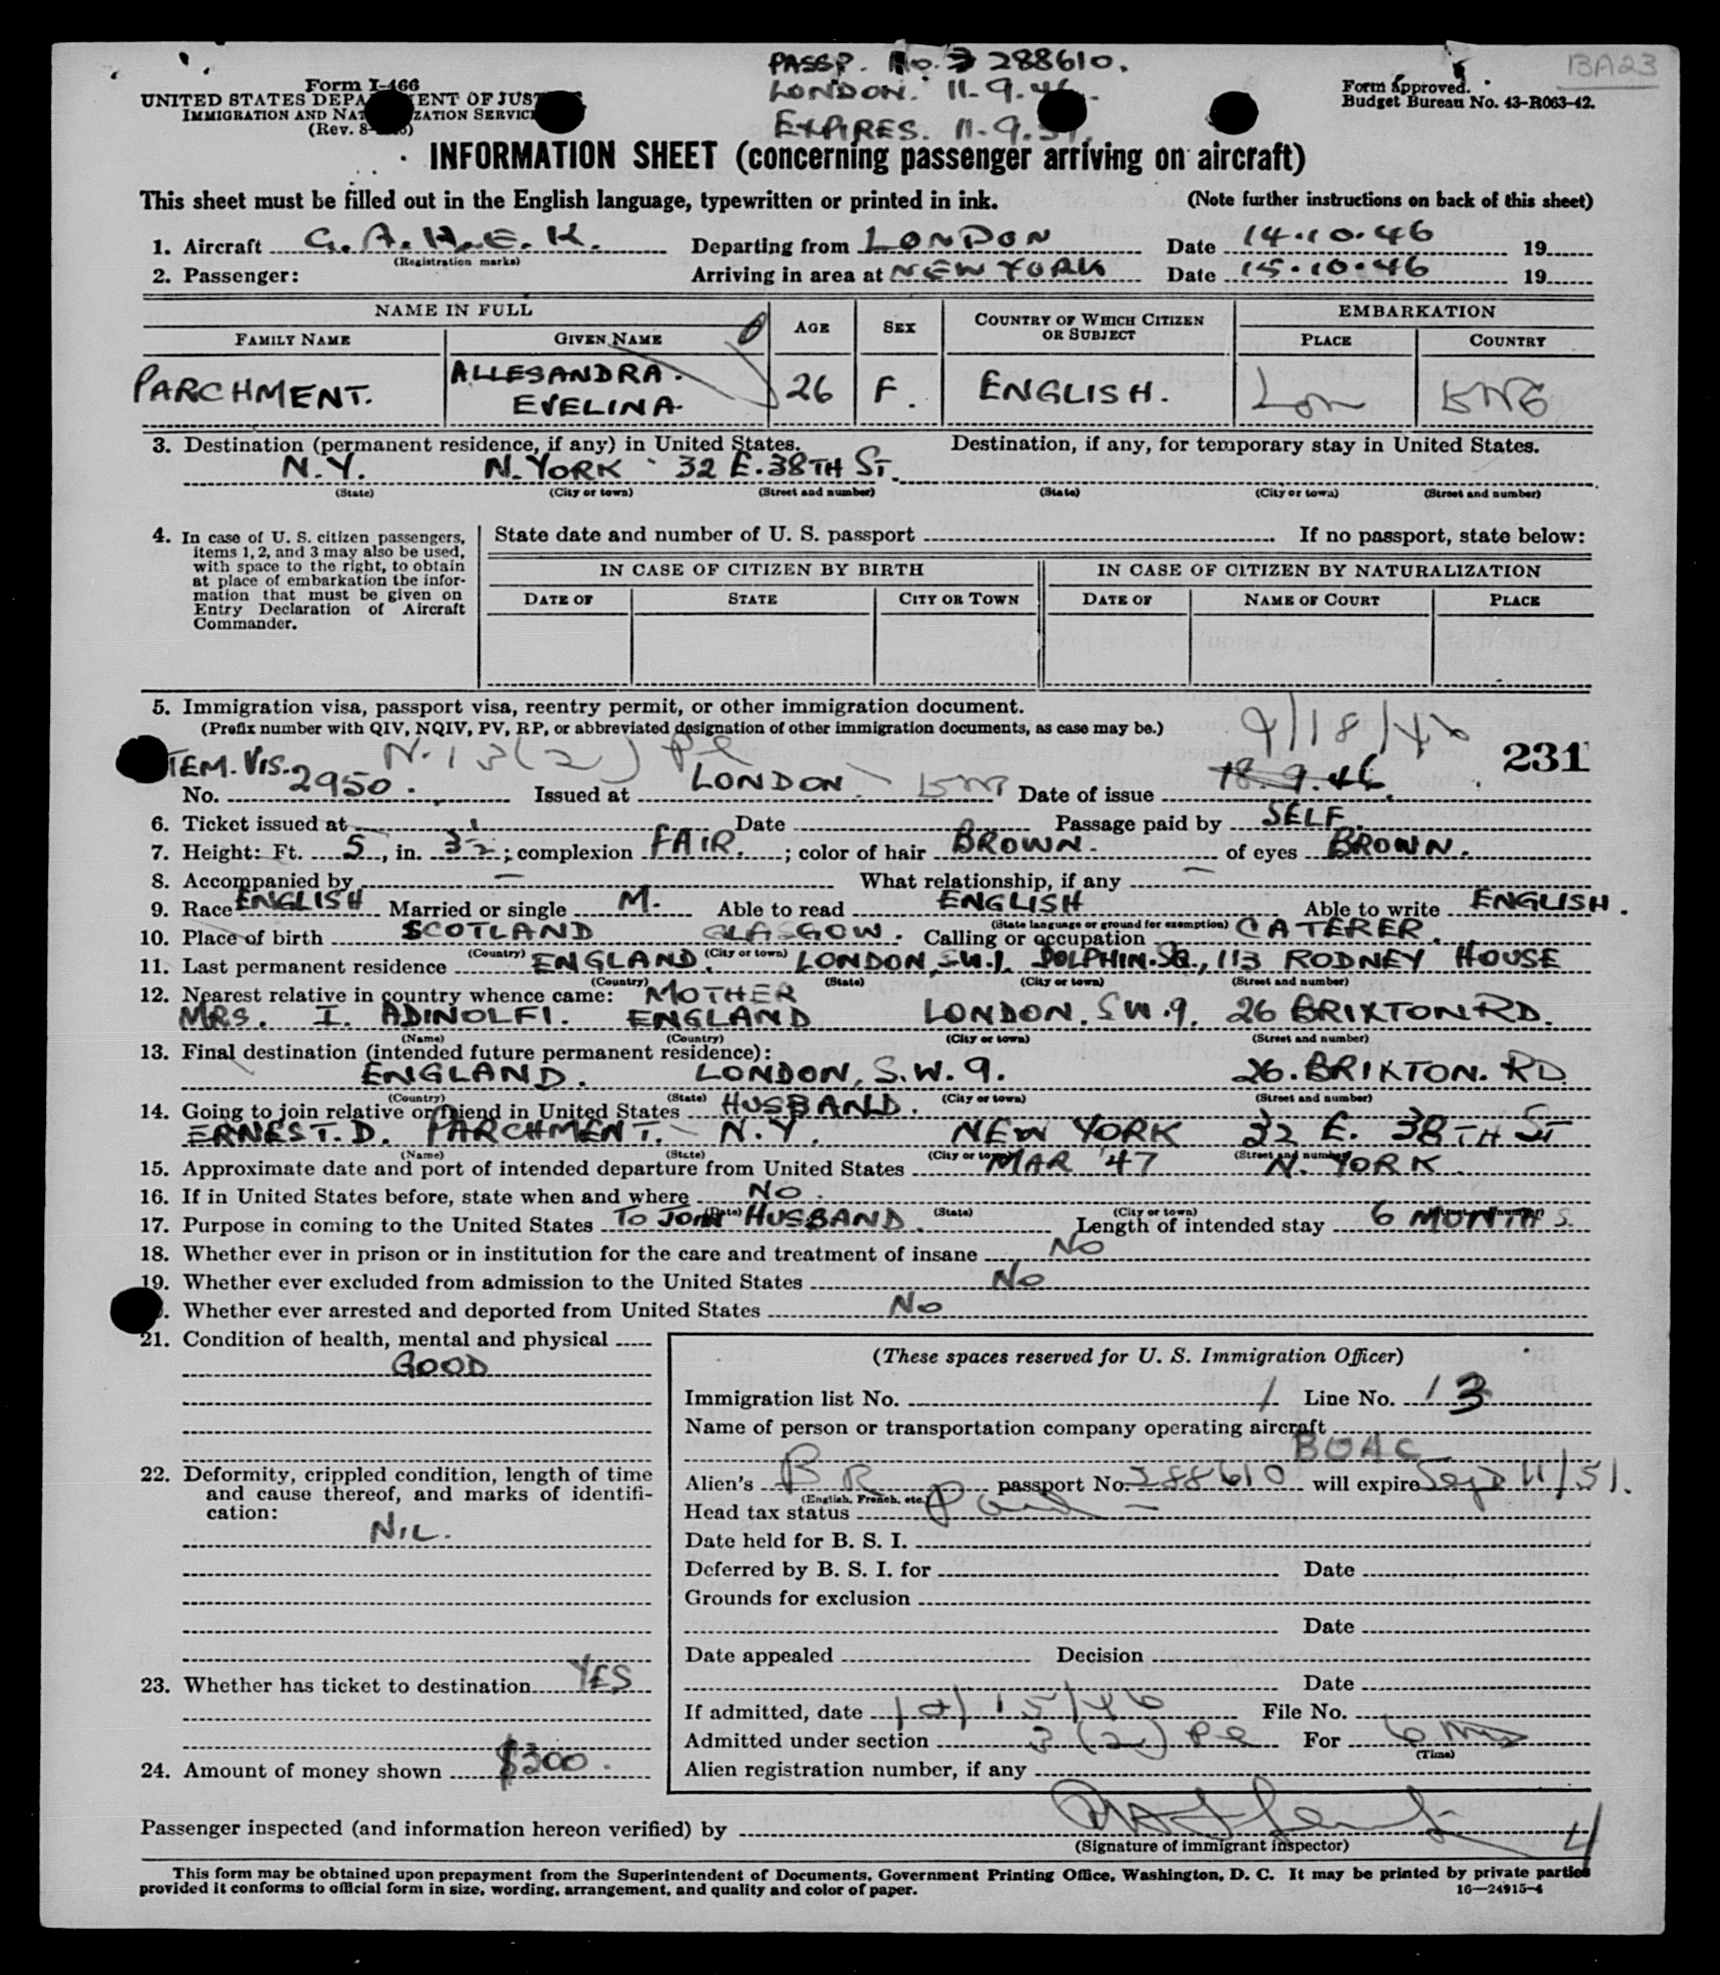 PASSP. No. 288610.
LONDON. 11-9-46.
EXPIRES. 11-9-51.
BA23
Form I-466
UNITED STATES DEPARTMENT OF JUSTICE
IMMIGRATION AND NATURALIZATION SERVICE
(Rev. 8-
Form approved.
Budget Bureau No. 43-R063-42.
INFORMATION SHEET (concerning passenger arriving on aircraft)
This sheet must be filled out in the English language, typewritten or printed in ink. (Note further instructions on back of this sheet)
1. Aircraft G.A.H.E.K. Departing from LONDON Date 14.10.46 19
(Registration marks)
2. Passenger: Arriving in area at NEW YORK Date 15.10.46 19
NAME IN FULL AGE SEX COUNTRY OF WHICH CITIZEN OR SUBJECT EMBARKATION
FAMILY NAME GIVEN NAME PLACE COUNTRY
PARCHMENT. ALLESANDRA. EVELINA 26 F. ENGLISH. Lon ENG
3. Destination (permanent residence, if any) in United States. Destination, if any, for temporary stay in United States.
N.Y. N. YORK 32 E. 38TH ST.
(State) (City or town) (Street and number) (State) (City or town) (Street and number)
4. In case of U. S. citizen passengers,
items 1, 2, and 3 may also be used,
with space to the right, to obtain
at place of embarkation the infor-
mation that must be given on
Entry Declaration of Aircraft
Commander.
State date and number of U. S. passport If no passport, state below:
IN CASE OF CITIZEN BY BIRTH IN CASE OF CITIZEN BY NATURALIZATION
DATE OF STATE CITY OR TOWN DATE OF NAME OF COURT PLACE
5. Immigration visa, passport visa, reentry permit, or other immigration document.
(Prefix number with QIV, NQIV, PV, RP, or abbreviated designation of other immigration documents, as case may be.)
9/18/46
231
TEM. VIS. N-13(2) Pl
No. 2950. Issued at LONDON ENG Date of issue 18.9.46.
6. Ticket issued at Date Passage paid by SELF.
7. Height: Ft. 5, in. 3½; complexion FAIR.; color of hair BROWN. of eyes BROWN.
8. Accompanied by — What relationship, if any —
9. Race ENGLISH Married or single M. Able to read ENGLISH Able to write ENGLISH.
(State language or ground for exemption)
10. Place of birth SCOTLAND GLASGOW. Calling or occupation CATERER.
(Country) (City or town)
11. Last permanent residence ENGLAND. LONDON, S.W.1. DOLPHIN. SQ., 113 RODNEY HOUSE
(Country) (State) (City or town) (Street and number)
12. Nearest relative in country whence came: MOTHER
MRS. I. ADINOLFI. ENGLAND LONDON. S.W.9. 26 BRIXTON RD.
(Name) (Country) (City or town) (Street and number)
13. Final destination (intended future permanent residence):
ENGLAND. LONDON, S.W.9. 26. BRIXTON. RD
(Country) (State) (City or town) (Street and number)
14. Going to join relative or friend in United States HUSBAND.
ERNEST. D. PARCHMENT. N.Y. NEW YORK 32 E. 38TH ST
(Name) (State) (City or town) (Street and number)
15. Approximate date and port of intended departure from United States MAR '47 N. YORK.
16. If in United States before, state when and where NO.
(Date) (State) (City or town) (Street and number)
17. Purpose in coming to the United States TO JOIN HUSBAND. Length of intended stay 6 MONTHS.
18. Whether ever in prison or in institution for the care and treatment of insane NO
19. Whether ever excluded from admission to the United States NO
Whether ever arrested and deported from United States NO
21. Condition of health, mental and physical
GOOD
22. Deformity, crippled condition, length of time
and cause thereof, and marks of identifi-
cation:
NIL.
23. Whether has ticket to destination YES
24. Amount of money shown $300.
(These spaces reserved for U. S. Immigration Officer)
Immigration list No. 1 Line No. 13
Name of person or transportation company operating aircraft
BOAC
Alien's BR passport No. 288610 will expire Sept 11/51.
(English, French, etc.)
Head tax status Paid —
Date held for B. S. I.
Deferred by B. S. I. for Date
Grounds for exclusion
Date
Date appealed Decision
Date
If admitted, date 10/15/46 File No.
Admitted under section 3(2) Pl For 6 Mos
(Time)
Alien registration number, if any
Passenger inspected (and information hereon verified) by
(Signature of immigrant inspector)
4
This form may be obtained upon prepayment from the Superintendent of Documents, Government Printing Office, Washington, D. C. It may be printed by private parties
provided it conforms to official form in size, wording, arrangement, and quality and color of paper. 16—24915-4